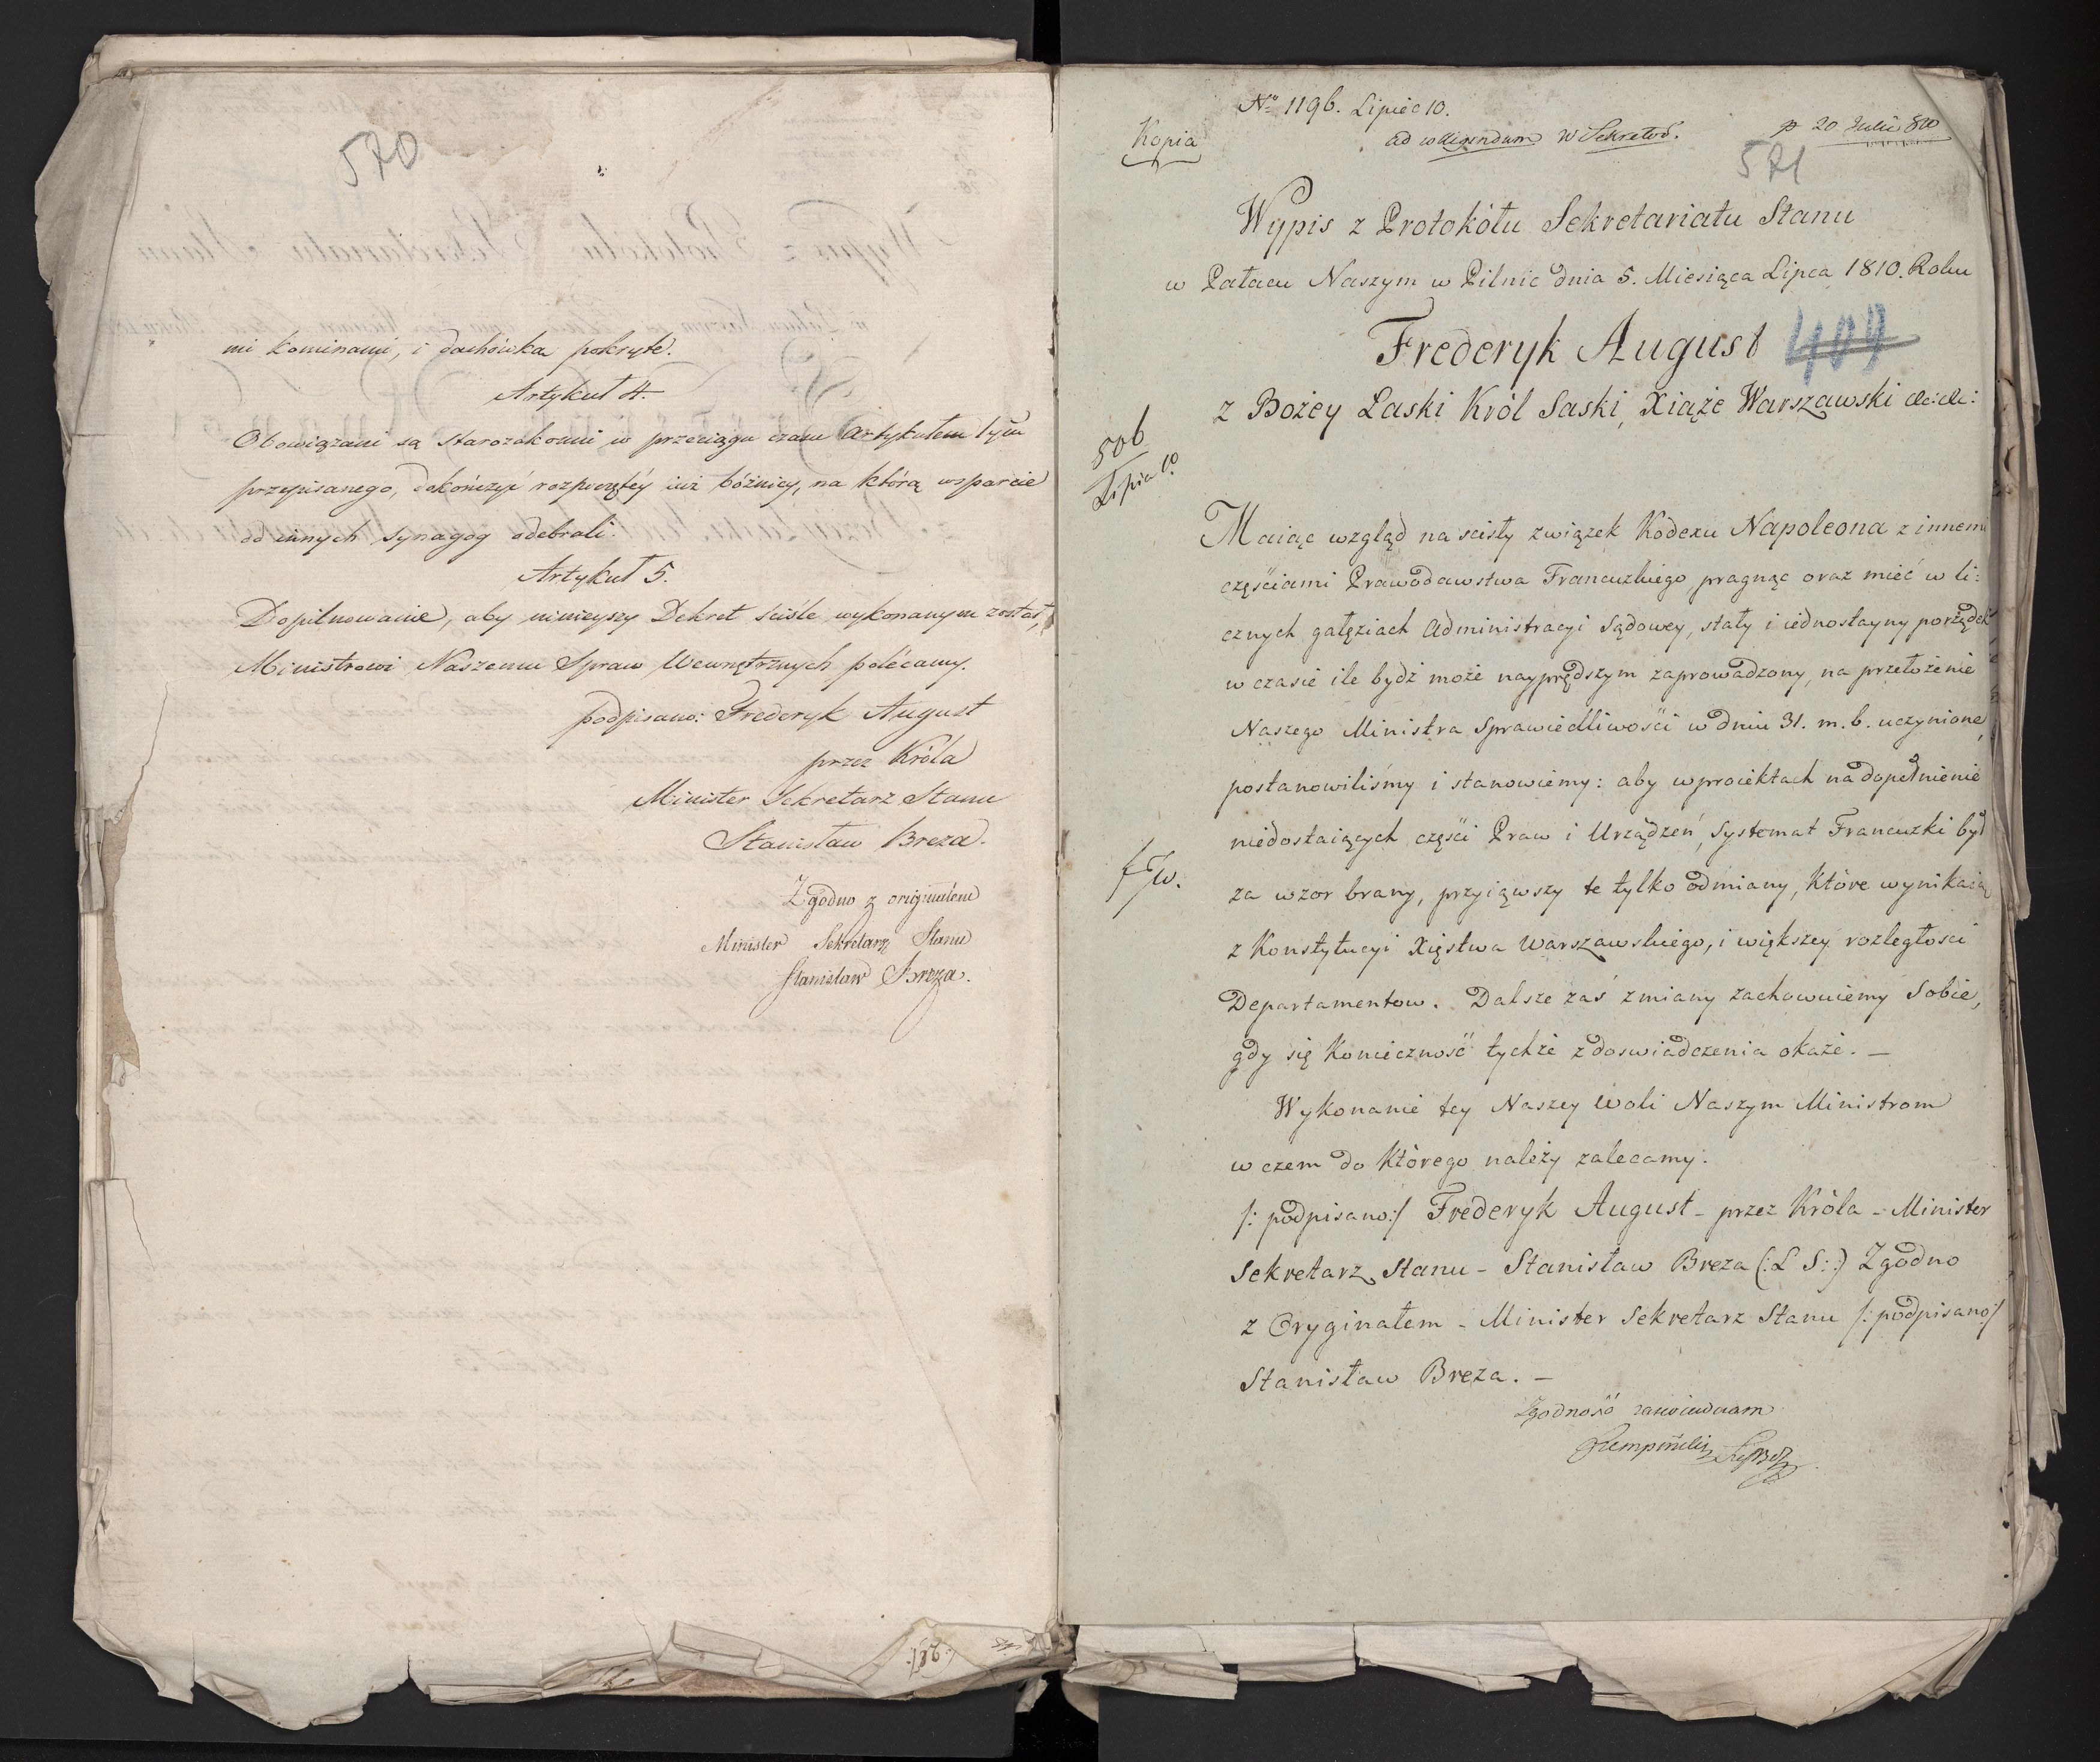 570
mi kominami, i dachówką pokryte.
Artykuł 4.
Obowiązani są Starozakonni w przeciągu czasu Artykułem tym
przepisanego, dokończyć rozpoczętéy iuż bóżnicy, na którą wsparcie
od innych Synagog odebrali.
Artykuł 5.
Dopilnowanie, aby ninieyszy Dekret ściśle wykonanym został,
Ministrowi Naszemu Spraw Wewnętrznych polécamy.
podpisano: Frederyk August
przez Króla
Minister Sekretarz Stanu
Stanisław Breza.
Zgodno z originałem
Minister Sekretarz Stanu
Stanisław Breza.
No 1196. Lipiec 10.
Kopia
ad colligendum w Sekretar.
20 Julii 810
571
Wypis z Protokółu Sekretariatu Stanu
w Pałacu Naszym w Pilnic dnia 5. Miesiąca Lipca 1810. Roku
Frederyk August 409
z Bożey Łaski Król Saski, Xiąże Warszawski &c: &c:
506
Lipia 10
Maiąc wzgląd na scisły związek Kodexu Napoleona z innemi
częściami Prawodawstwa Francuzkiego pragnąc oraz mieć w li:
cznych gałęziach Administracyi Sądowey, stały i iednostayny porządek
w czasie ile bydź może nayprędszym zaprowadzony, na przełożenie
Naszego Ministra Sprawiedliwości w dniu 31. m. b. uczynione,
postanowiliśmy i stanowiemy: aby w proiektach na dopełnienie
niedostaiących części Praw i Urządzeń, Systemat Francuzki był
za wzor brany, przyiąwszy te tylko odmiany, które wynikaią
z Konstytucyi Xięstwa Warszawskiego, i większey rozległosci
Departamentow. Dalsze zaś zmiany zachowuiemy Sobie,
gdy się Konieczność tychże z doswiadczenia okaże. —
Wykonanie tey Naszey Woli Naszym Ministrom
w czem do Którego należy zalecamy.
/: podpisano:/ Frederyk August - przez Króla - Minister
Sekretarz Stanu - Stanisław Breza (: L S :) Zgodno
z Oryginałem - Minister Sekretarz Stanu /: podpisano:/
Stanisław Breza. —
Zgodność zaswiadczam